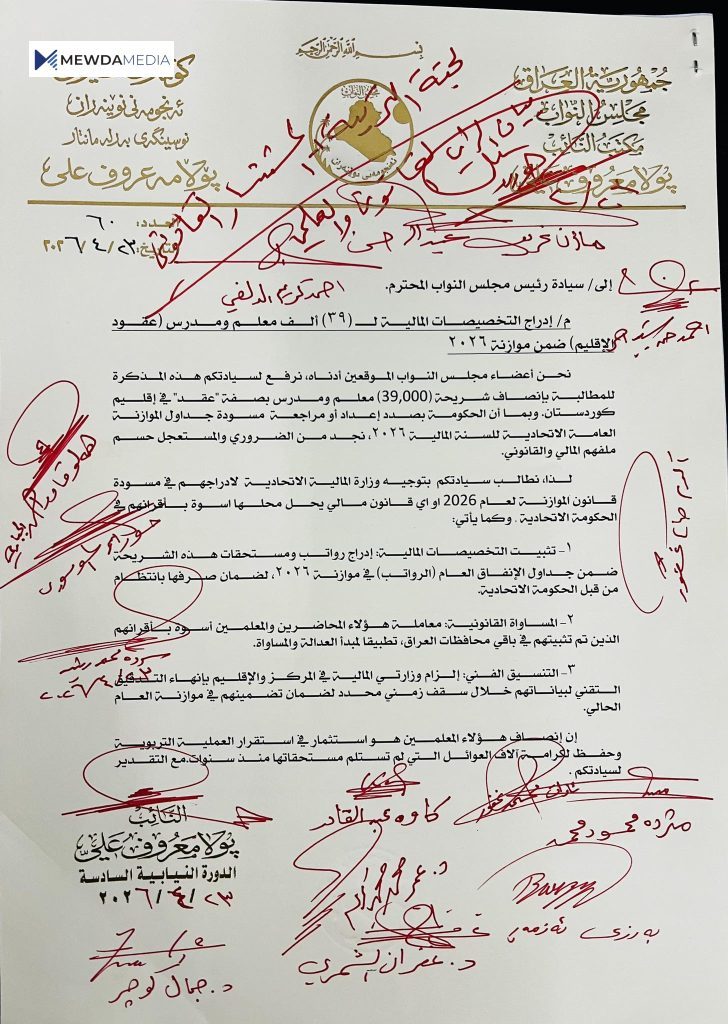 MEWDAMEDIA
بسم الله الرحمن الرحيم
جمهورية العراق
مجلس النواب
مكتب النائب
پولا معروف علي
ئەنجومەنی نوینەران
نوسینگەی پەرلەمانتار
پۆلا مەعروف علی
مجلس النواب
ئەنجومەنی نوێنەران
العدد: ٦٠
التاريخ: ٢٠٢٦/٤/٢٣
لجنة التربية
المستشار القانوني
احمد كريم الدلفي
إلى/ سيادة رئيس مجلس النواب المحترم.
م/ إدراج التخصيصات المالية لـ (٣٩) ألف معلم ومدرس (عقود
الإقليم) ضمن موازنة ٢٠٢٦
نحن أعضاء مجلس النواب الموقعين أدناه، نرفع لسيادتكم هذه المذكرة
للمطالبة بإنصاف شريحة (39,000) معلم ومدرس بصفة "عقد" في إقليم
كوردستان. وبما أن الحكومة بصدد إعداد أو مراجعة مسودة جداول الموازنة
العامة الاتحادية للسنة المالية ٢٠٢٦، نجد من الضروري والمستعجل حسم
ملفهم المالي والقانوني.
لذا، نطالب سيادتكم بتوجيه وزارة المالية الاتحادية لادراجهم في مسودة
قانون الموازنة لعام 2026 او اي قانون مالي يحل محلها اسوة بأقرانهم في
الحكومة الاتحادية . وكما يأتي:
١- تثبيت التخصيصات المالية: إدراج رواتب ومستحقات هذه الشريحة
ضمن جداول الإنفاق العام (الرواتب) في موازنة ٢٠٢٦، لضمان صرفها بانتظام
من قبل الحكومة الاتحادية.
٢- المساواة القانونية: معاملة هؤلاء المحاضرين والمعلمين أسوة بأقرانهم
الذين تم تثبيتهم في باقي محافظات العراق، تطبيقا لمبدأ العدالة والمساواة.
٣- التنسيق الفني: إلزام وزارتي المالية في المركز والإقليم بإنهاء التدقيق
التقني لبياناتهم خلال سقف زمني محدد لضمان تضمينهم في موازنة العام
الحالي.
إن إنصاف هؤلاء المعلمين هو استثمار في استقرار العملية التربوية
وحفظ لكرامة آلاف العوائل التي لم تستلم مستحقاتها منذ سنوات.مع التقدير
لسيادتكم .
٢٠٢٦/٤/٢٣
كاوه عبدالقادر
مژده محمود محمد
النائب
پولا معروف علي
الدورة النيابية السادسة
٢٠٢٦/٤/٢٣
د. غفران الشمري
د. جمال كوجر